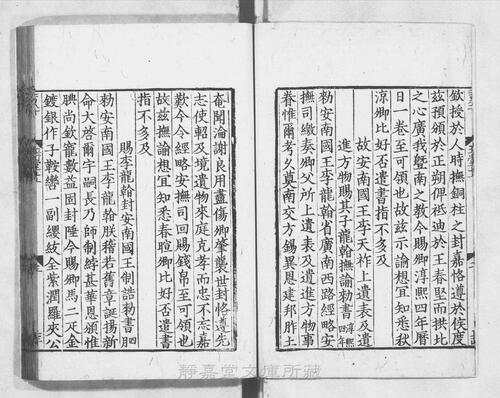 欽授於人時撫銅柱之封嘉恪遵於侯度
茲預頒於正朔俾祗迪於王春堅而拱比
之心廣我曁南之教今賜卿淳熙四年曆
日一卷至可領也故茲示諭想宜知悉秋
涼卿比好否遣書指不多及
故安南國王李天祚上遺表及遺
進方物賜其子龍翰撫諭勑書淳熙四年
勑安南國王李龍翰省廣南西路經略安
撫司繳奏卿父所上遺表及遺進方物事
眷惟爾考久奠南交方錫異恩建邦胙土
奄聞淪謝良用盡傷卿肇襲世封恪遵先
志使軺及境遺物來庭克孝而忠不忘嘉
歎今令經略安撫司回賜錢帛至可領也
故茲撫諭想宜知悉春暄卿比好否遣書
指不多及
賜李龍翰封安南國王制誥勑書
勑安南國王李龍翰朕稽若舊章誕揚新
命大啓爾宇嗣長乃師制綍甚華恩頒惟
腆尚欽寵數益固封陲今賜卿馬二疋金
鍍銀作子鞍轡一副纓紱全紫潤羅夾公
靜嘉堂文庫所藏